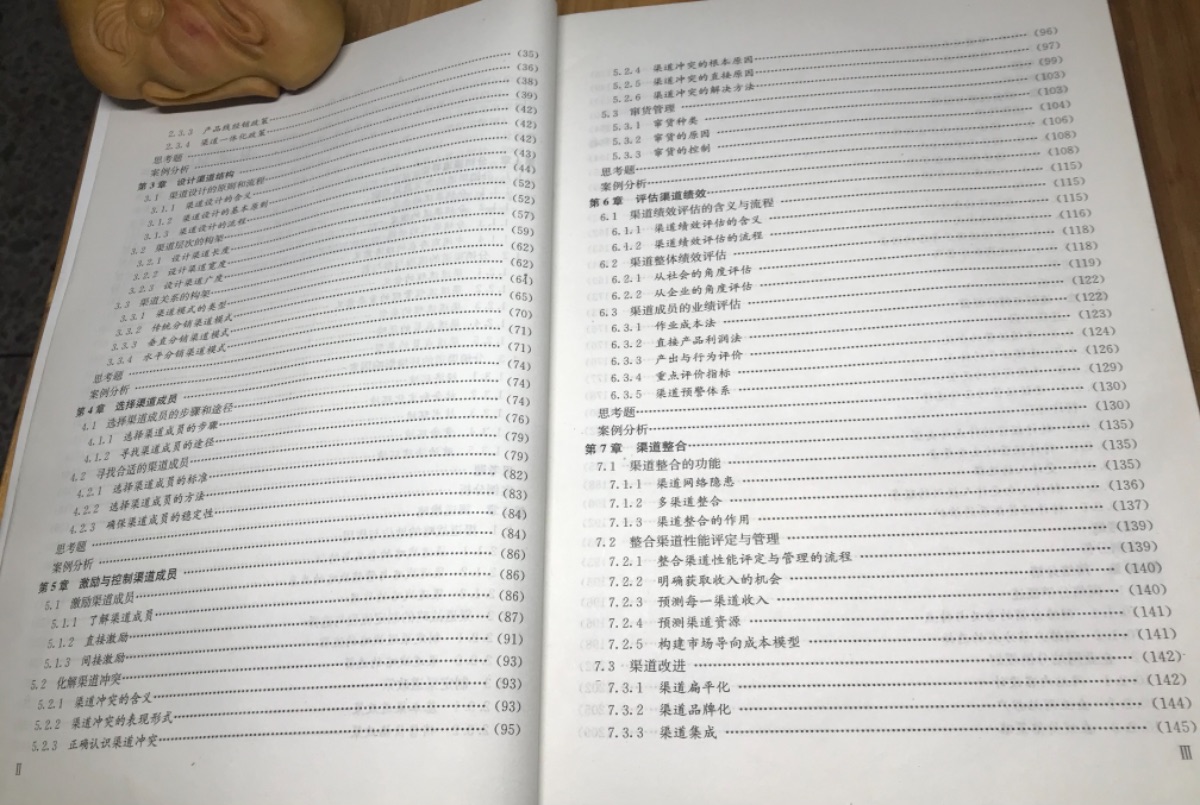 2.3.3 产品线经销政策 (35)
2.3.4 渠道一体化政策 (36)
思考题 (38)
案例分析 (39)
第3章 设计渠道结构 (42)
3.1 渠道设计的原则和流程 (42)
3.1.1 渠道设计的含义 (42)
3.1.2 渠道设计的基本原则 (43)
3.1.3 渠道设计的流程 (44)
3.2 渠道层次的构架 (52)
3.2.1 设计渠道长度 (52)
3.2.2 设计渠道宽度 (57)
3.2.3 设计渠道广度 (59)
3.3 渠道关系的构架 (62)
3.3.1 渠道模式的类型 (62)
3.3.2 传统分销渠道模式 (64)
3.3.3 垂直分销渠道模式 (65)
3.3.4 水平分销渠道模式 (70)
思考题 (71)
案例分析 (71)
第4章 选择渠道成员 (74)
4.1 选择渠道成员的步骤和途径 (74)
4.1.1 选择渠道成员的步骤 (74)
4.1.2 寻找渠道成员的途径 (76)
4.2 寻找合适的渠道成员 (79)
4.2.1 选择渠道成员的标准 (79)
4.2.2 选择渠道成员的方法 (82)
4.2.3 确保渠道成员的稳定性 (83)
思考题 (84)
案例分析 (84)
第5章 激励与控制渠道成员 (86)
5.1 激励渠道成员 (86)
5.1.1 了解渠道成员 (86)
5.1.2 直接激励 (87)
5.1.3 间接激励 (91)
5.2 化解渠道冲突 (93)
5.2.1 渠道冲突的含义 (93)
5.2.2 渠道冲突的表现形式 (93)
5.2.3 正确认识渠道冲突 (95)
Ⅱ
5.2.4 渠道冲突的根本原因 (96)
5.2.5 渠道冲突的直接原因 (97)
5.2.6 渠道冲突的解决方法 (99)
5.3 窜货管理 (103)
5.3.1 窜货种类 (103)
5.3.2 窜货的原因 (104)
5.3.3 窜货的控制 (106)
思考题 (108)
案例分析 (108)
第6章 评估渠道绩效 (115)
6.1 渠道绩效评估的含义与流程 (115)
6.1.1 渠道绩效评估的含义 (115)
6.1.2 渠道绩效评估的流程 (116)
6.2 渠道整体绩效评估 (118)
6.2.1 从社会的角度评估 (118)
6.2.2 从企业的角度评估 (119)
6.3 渠道成员的业绩评估 (122)
6.3.1 作业成本法 (122)
6.3.2 直接产品利润法 (123)
6.3.3 产出与行为评价 (124)
6.3.4 重点评价指标 (126)
6.3.5 渠道预警体系 (129)
思考题 (130)
案例分析 (130)
第7章 渠道整合 (135)
7.1 渠道整合的功能 (135)
7.1.1 渠道网络隐患 (135)
7.1.2 多渠道整合 (136)
7.1.3 渠道整合的作用 (137)
7.2 整合渠道性能评定与管理 (139)
7.2.1 整合渠道性能评定与管理的流程 (139)
7.2.2 明确获取收入的机会 (140)
7.2.3 预测每一渠道收入 (140)
7.2.4 预测渠道资源 (141)
7.2.5 构建市场导向成本模型 (141)
7.3 渠道改进 (142)
7.3.1 渠道扁平化 (142)
7.3.2 渠道品牌化 (144)
7.3.3 渠道集成 (145)
Ⅲ